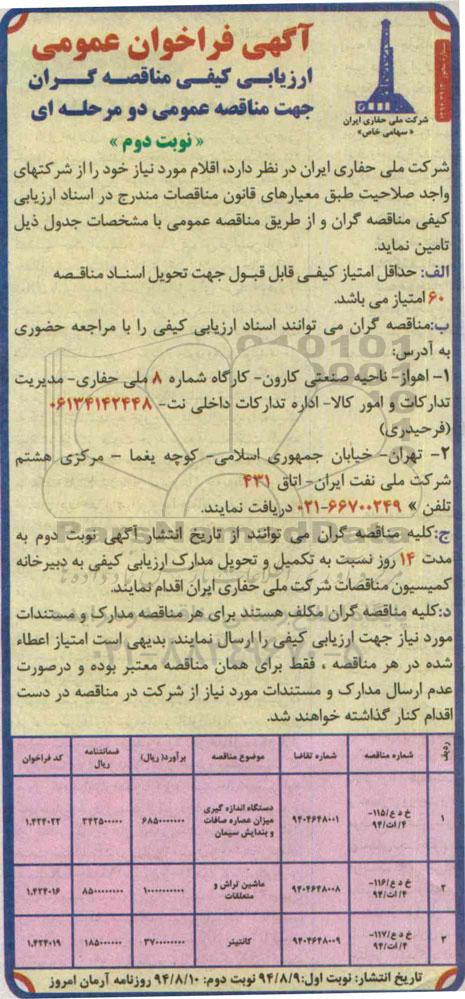 آگهی فراخوان عمومی
ارزیابی کیفی مناقصه گران
جهت مناقصه عمومی دو مرحله ای
« نوبت دوم »
شرکت ملی حفاری ایران
« سهامی خاص »
شرکت ملی حفاری ایران در نظر دارد، اقلام مورد نیاز خود را از شرکتهای
واجد صلاحیت طبق معیارهای قانون مناقصات مندرج در اسناد ارزیابی
کیفی مناقصه گران و از طریق مناقصه عمومی با مشخصات جدول ذیل
تامین نماید.
الف: حداقل امتیاز کیفی قابل قبول جهت تحویل اسناد مناقصه
۶۰ امتیاز می باشد.
ب:مناقصه گران می توانند اسناد ارزیابی کیفی را با مراجعه حضوری
به آدرس:
۱- اهواز- ناحیه صنعتی کارون- کارگاه شماره ۸ ملی حفاری- مدیریت
تدارکات و امور کالا- اداره تدارکات داخلی نت- ۰۶۱۳۴۱۴۲۴۴۸
(فرحیدری)
۲- تهران- خیابان جمهوری اسلامی- کوچه یغما – مرکزی هشتم
شرکت ملی نفت ایران- اتاق ۴۳۱
تلفن » ۶۶۷۰۰۲۴۹-۰۲۱ دریافت نمایند.
ج:کلیه مناقصه گران می توانند از تاریخ انتشار آگهی نوبت دوم به
مدت ۱۴ روز نسبت به تکمیل و تحویل مدارک ارزیابی کیفی به دبیرخانه
کمیسیون مناقصات شرکت ملی حفاری ایران اقدام نمایند.
د:کلیه مناقصه گران مکلف هستند برای هر مناقصه مدارک و مستندات
مورد نیاز جهت ارزیابی کیفی را ارسال نمایند. بدیهی است امتیاز اعطاء
شده در هر مناقصه ، فقط برای همان مناقصه معتبر بوده و درصورت
عدم ارسال مدارک و مستندات مورد نیاز از شرکت در مناقصه در دست
اقدام کنار گذاشته خواهند شد.
ردیف شماره مناقصه شماره تقاضا موضوع مناقصه برآورد(ریال) ضمانتنامه ریال کد فراخوان
۱ خ د ع/۱۱۵-۴/ات/۹۴ ۹۴۰۴۶۴۸۰۰۱ دستگاه اندازه گیری میزان عصاره صافات و بندایش سیمان ۶۸۵۰۰۰۰۰۰۰ ۳۴۲۵۰۰۰۰۰ ۱.۴۲۴۰۲۲
۲ خ د ع/۱۱۶-۴/ات/۹۴ ۹۴۰۴۶۴۸۰۰۸ ماشین تراش و متعلقات ۱۰۰۰۰۰۰۰۰۰۰ ۸۵۰۰۰۰۰۰۰ ۱.۴۲۴۰۱۶
۳ خ د ع/۱۱۷-۴/ات/۹۴ ۹۴۰۴۶۴۸۰۰۹ کانتینر ۳۷۰۰۰۰۰۰۰۰ ۱۸۵۰۰۰۰۰۰ ۱.۴۲۴۰۱۹
تاریخ انتشار: نوبت اول:۹۴/۸/۹ نوبت دوم: ۹۴/۸/۱۰ روزنامه آرمان امروز
ParsNamadData